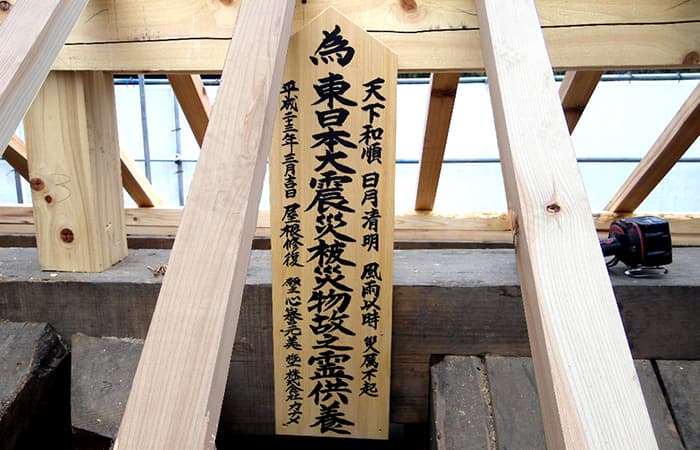 天下和順 日月清明 風雨以時 災厲不起
為 東日本大震災被災物故之霊供養
平成二十三年 三月吉日 屋根修復 心峯元美 株式会社カナメ